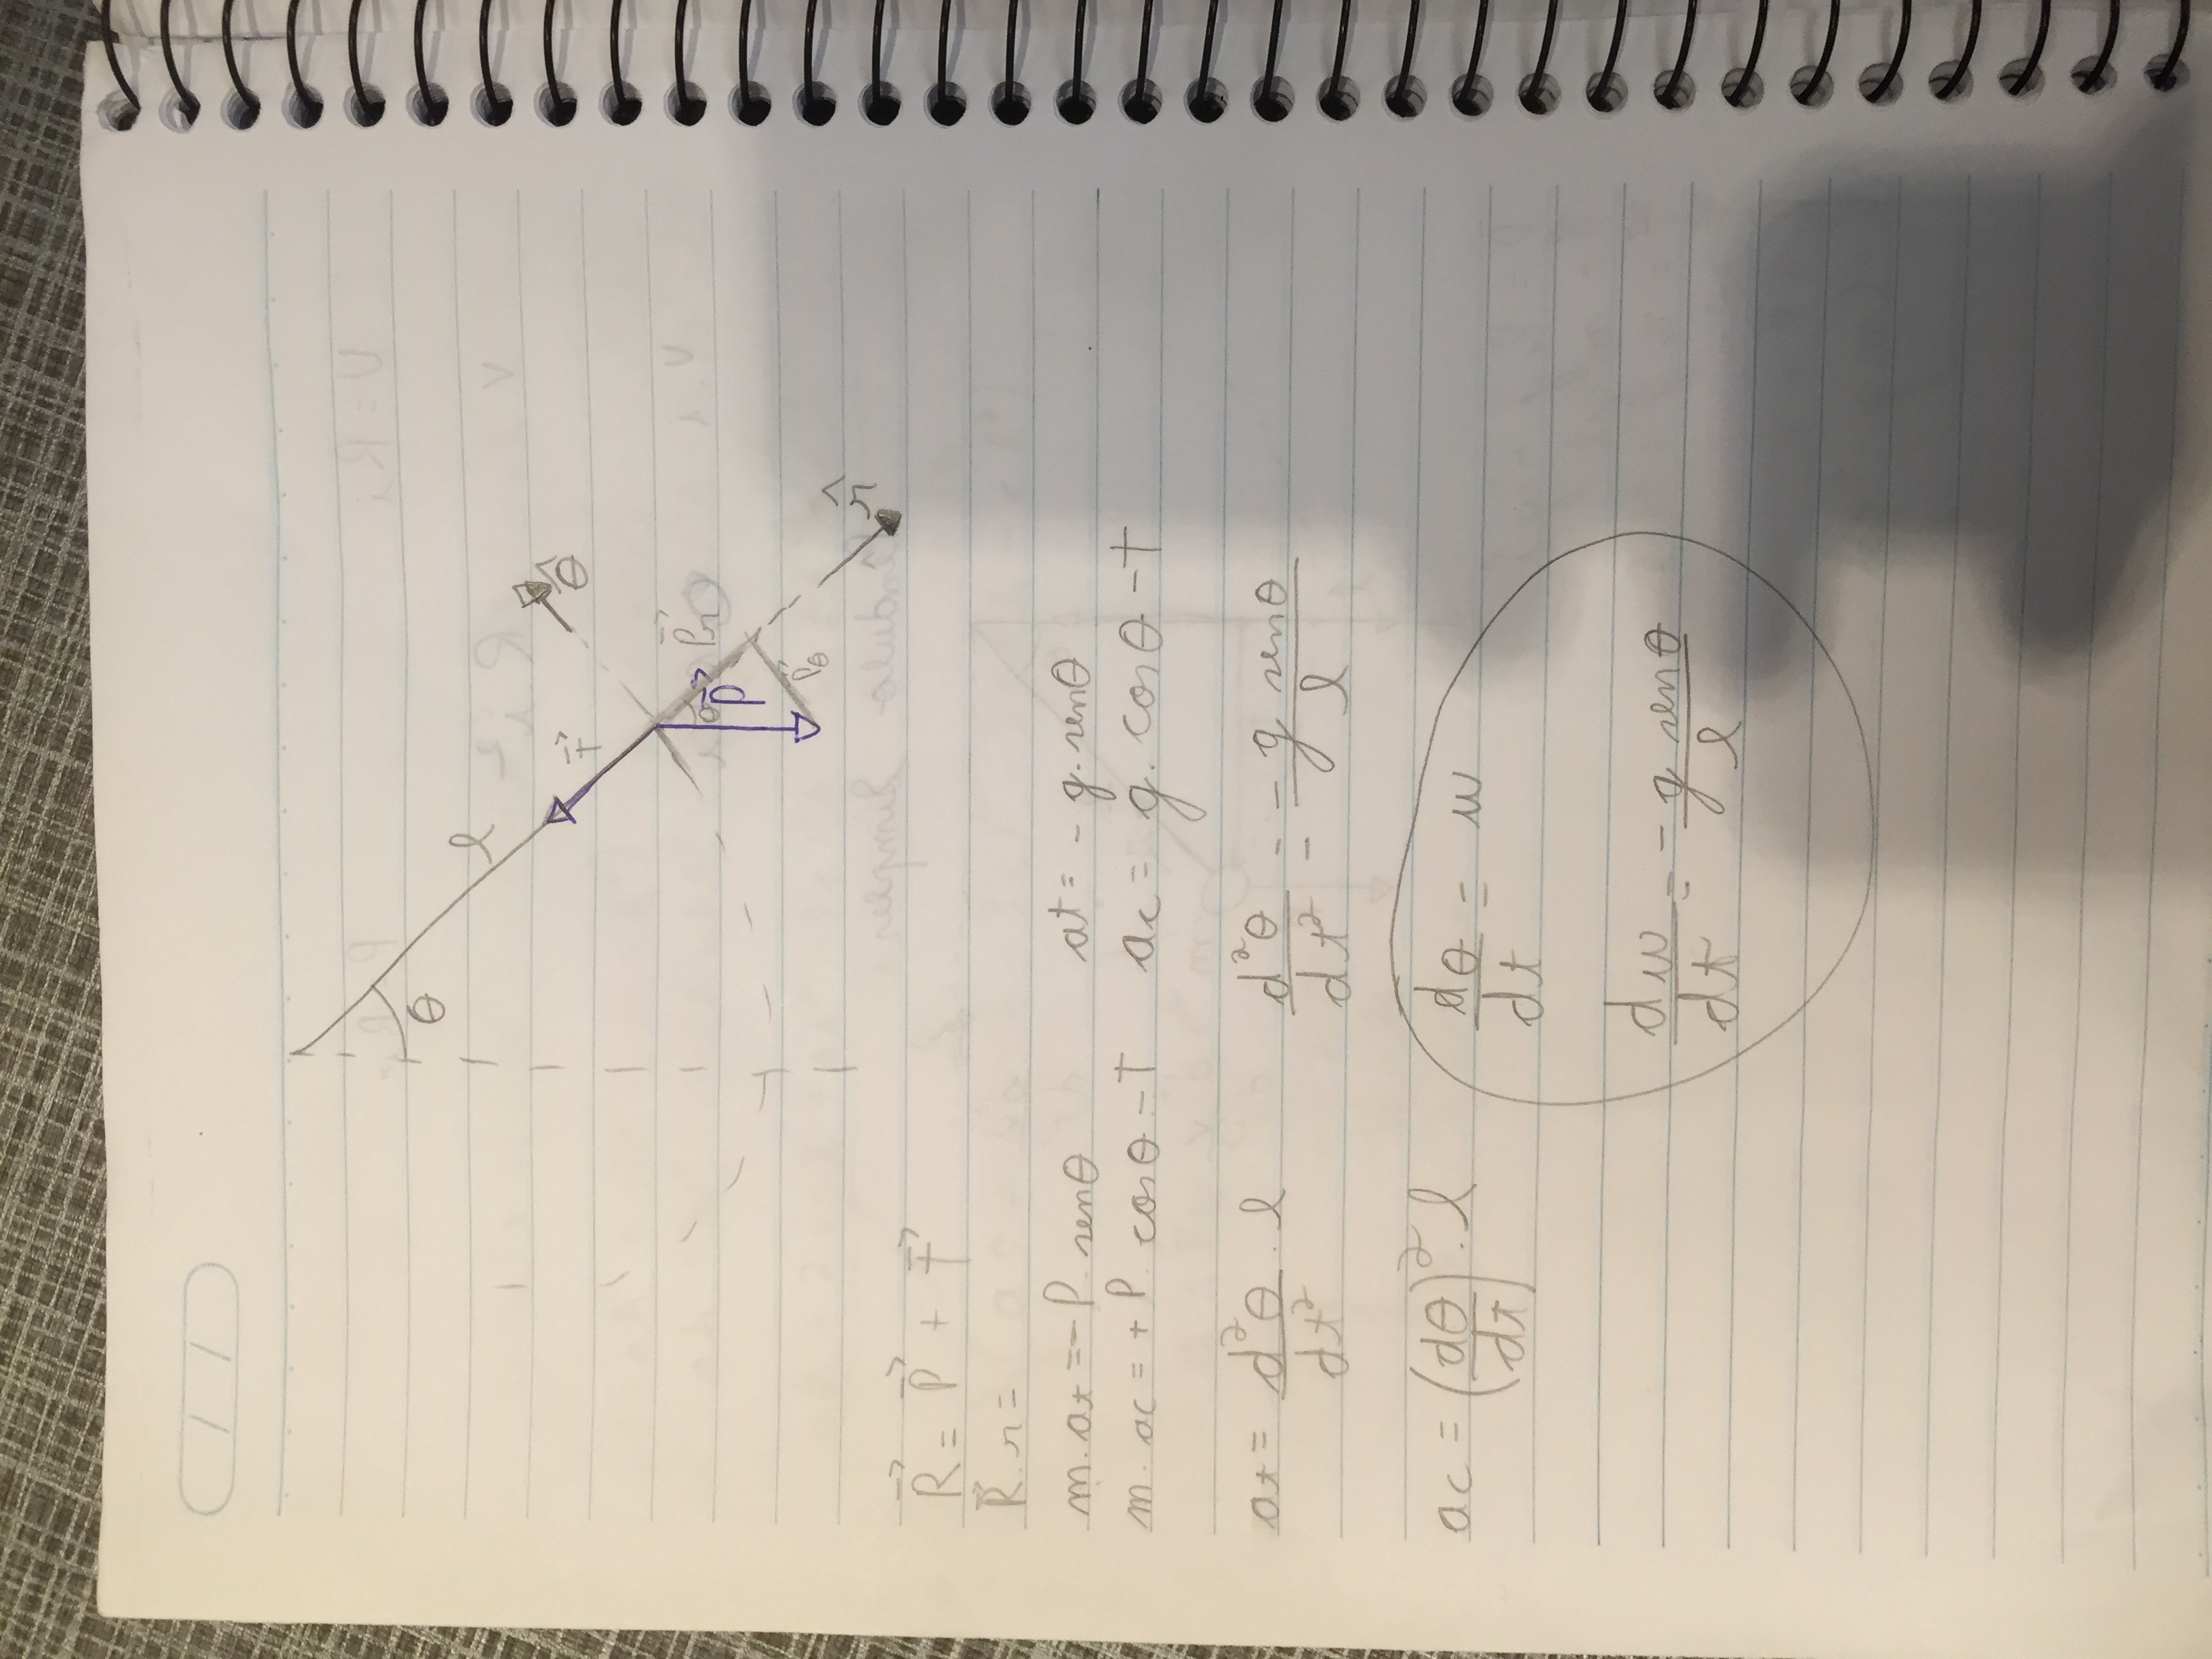 / /
θ
l
T⃗
θ̂
θ
P⃗
P⃗r
P⃗θ
r̂
R⃗ = P⃗ + T⃗
R⃗.r =
m.at = -P senθ   at = - g.senθ
m.ac = + P. cosθ - T   ac = g. cosθ - T
at = d²θ/dt² . l   d²θ/dt² = - g senθ/l
ac = (dθ/dt)² . l   dθ/dt = w
dw/dt = - g senθ/l